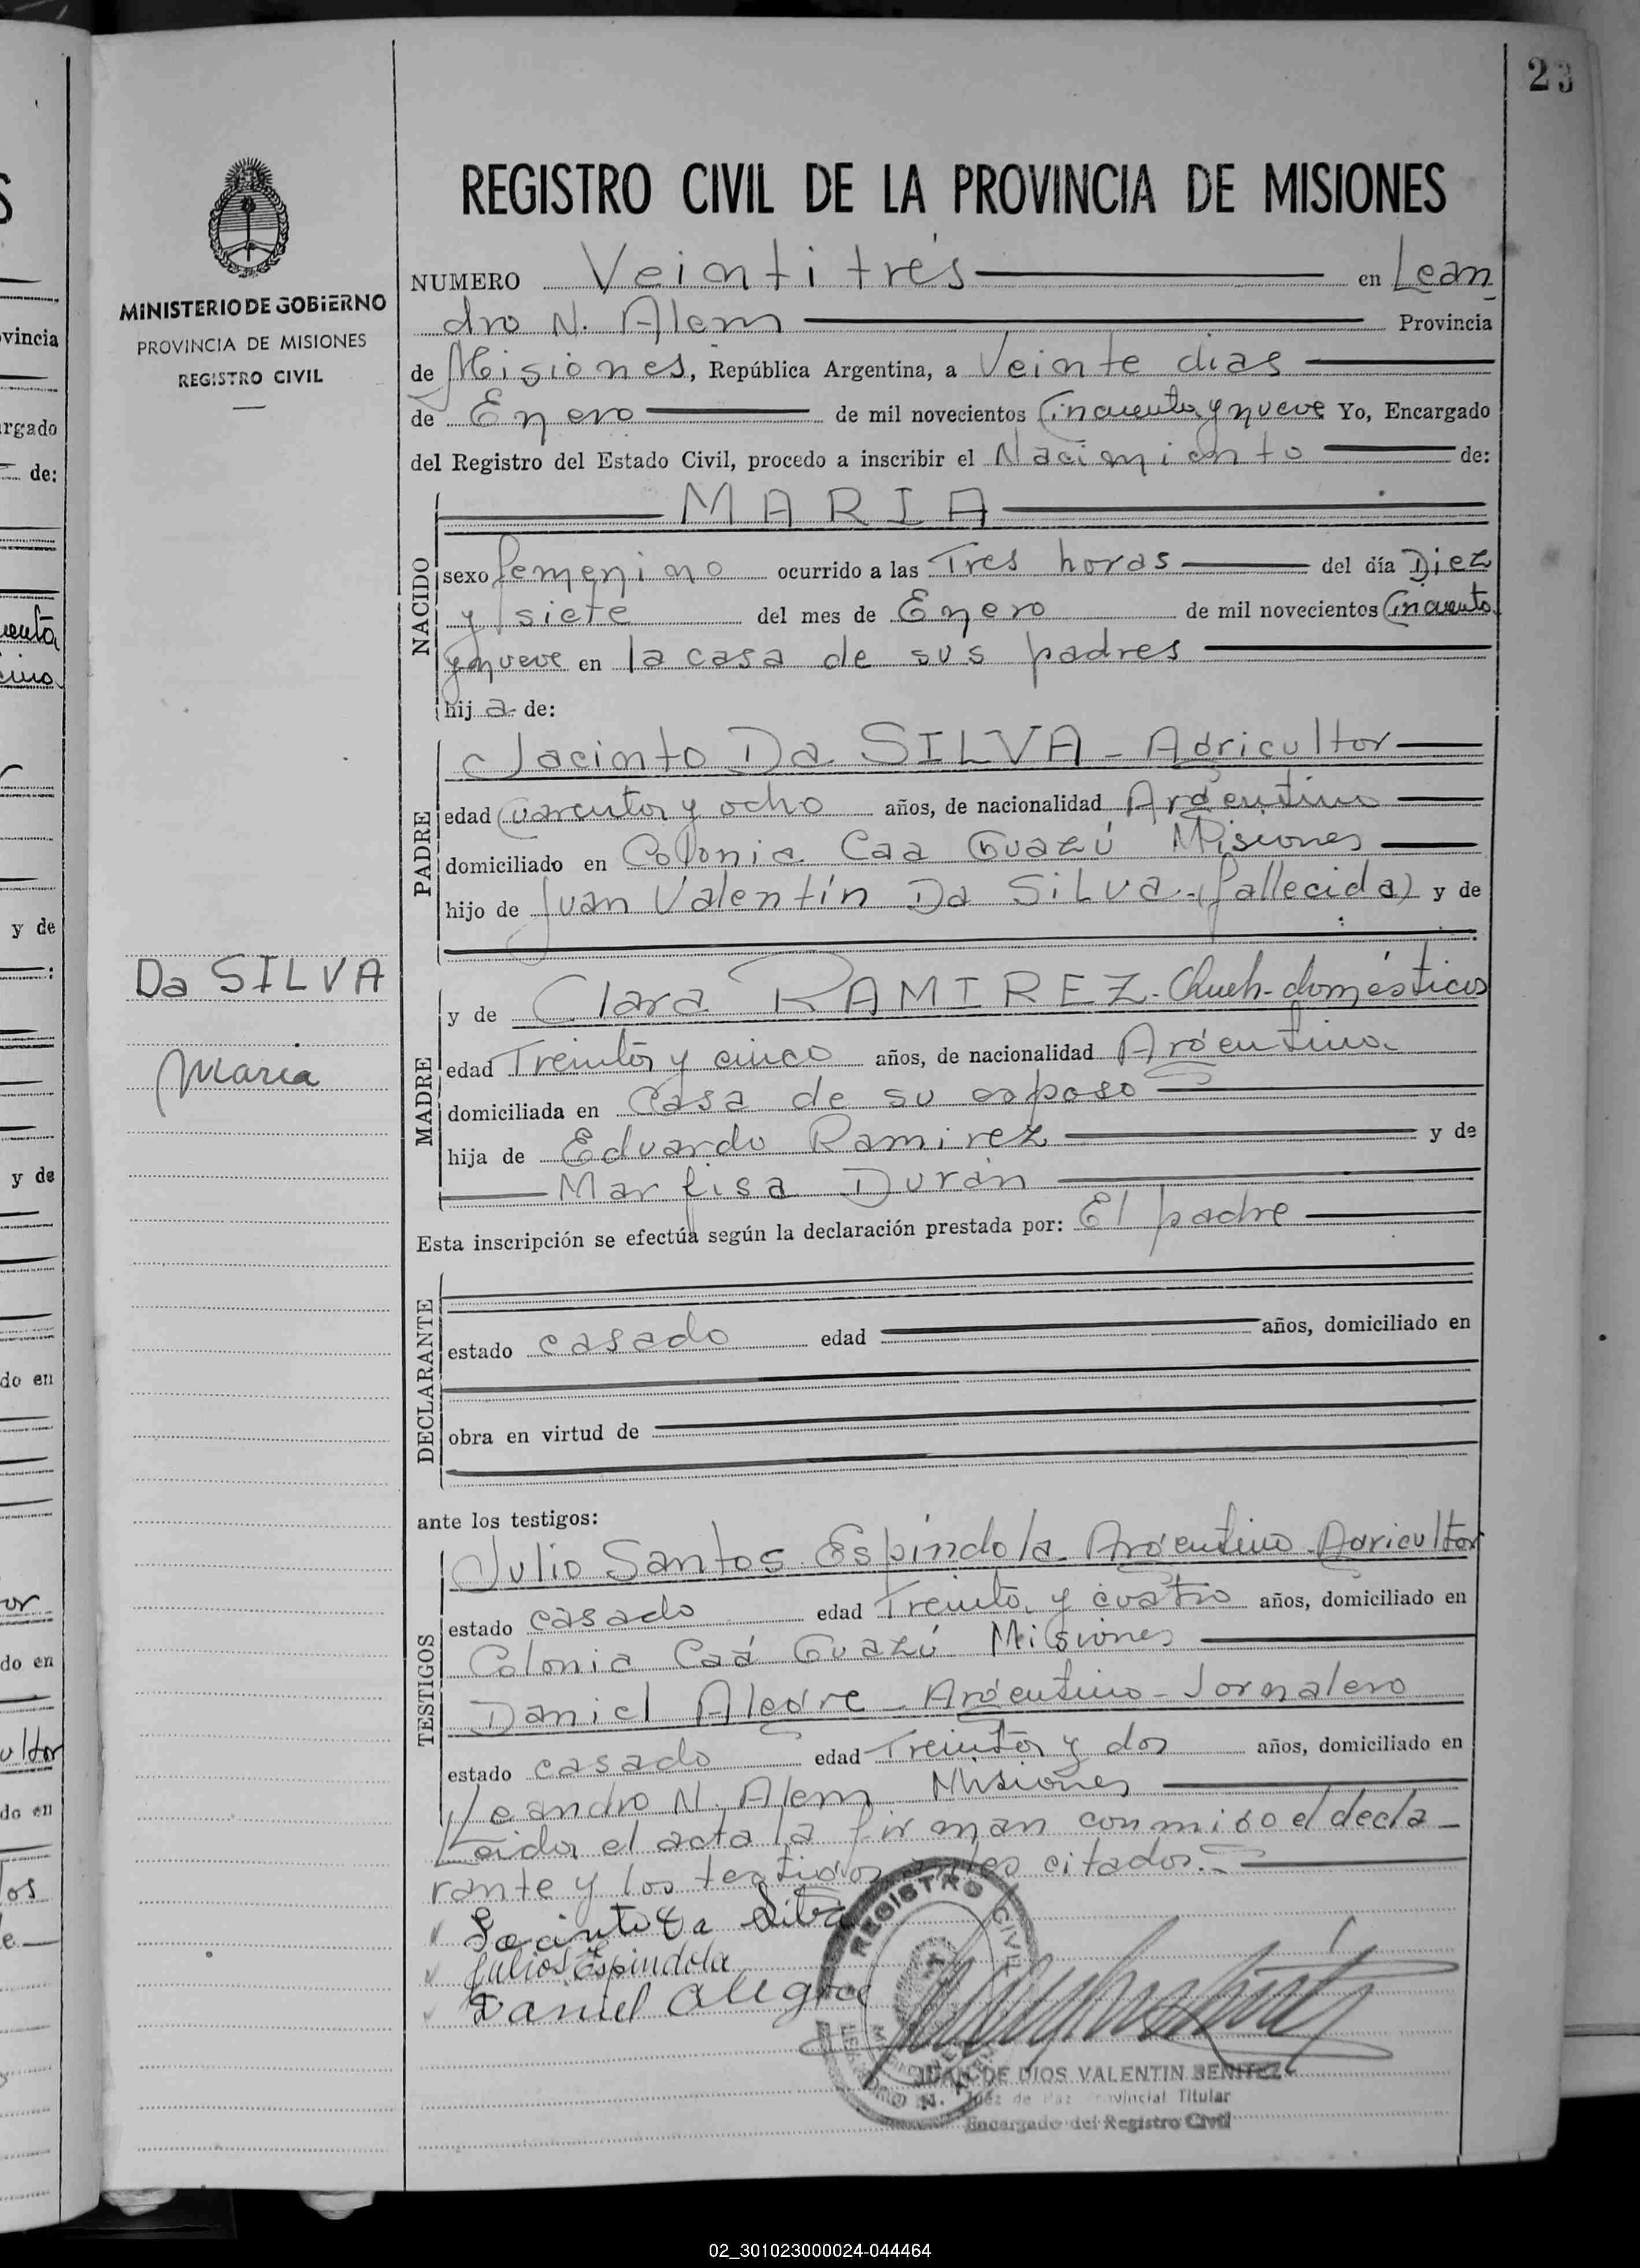 23
REGISTRO CIVIL DE LA PROVINCIA DE MISIONES
MINISTERIO DE GOBIERNO
PROVINCIA DE MISIONES
REGISTRO CIVIL
NUMERO Veintitrés en Lean
dro N. Alem Provincia
de Misiones, República Argentina, a Veinte dias
de Enero de mil novecientos Cincuenta y nueve Yo, Encargado
del Registro del Estado Civil, procedo a inscribir el Nacimiento de:
NACIDO
MARIA
sexo femenino ocurrido a las Tres horas del día Diez
y siete del mes de Enero de mil novecientos Cincuenta
y nueve en la casa de sus padres
hij a de:
PADRE
Jacinto Da SILVA - Agricultor
edad Cuarenta y ocho años, de nacionalidad Argentino
domiciliado en Colonia Caa Guazú Misiones
hijo de Juan Valentín Da Silva - (fallecida) y de
Da SILVA
Maria
MADRE
y de Clara RAMIREZ - Queh - domésticos
edad Treinta y cinco años, de nacionalidad Argentina
domiciliada en Casa de su esposo
hija de Eduardo Ramirez y de
Marfisa Durán
Esta inscripción se efectúa según la declaración prestada por: El padre
DECLARANTE
estado casado edad años, domiciliado en
obra en virtud de
ante los testigos:
TESTIGOS
Julio Santos Espíndola - Argentino - Agricultor
estado casado edad Treinta y cuatro años, domiciliado en
Colonia Caá Guazú Misiones
Daniel Alegre - Argentino - Jornalero
estado casado edad Treinta y dos años, domiciliado en
Leandro N. Alem Misiones
Leida el acta la firman conmigo el decla-
rante y los testigos antes citados.-
Jacinto Da Silva
Julio S Espindola
Daniel Alegre
REGISTRO CIVIL
JUAN DE DIOS VALENTIN BENITEZ
Juez de Paz Provincial Titular
Encargado del Registro Civil
02_301023000024-044464